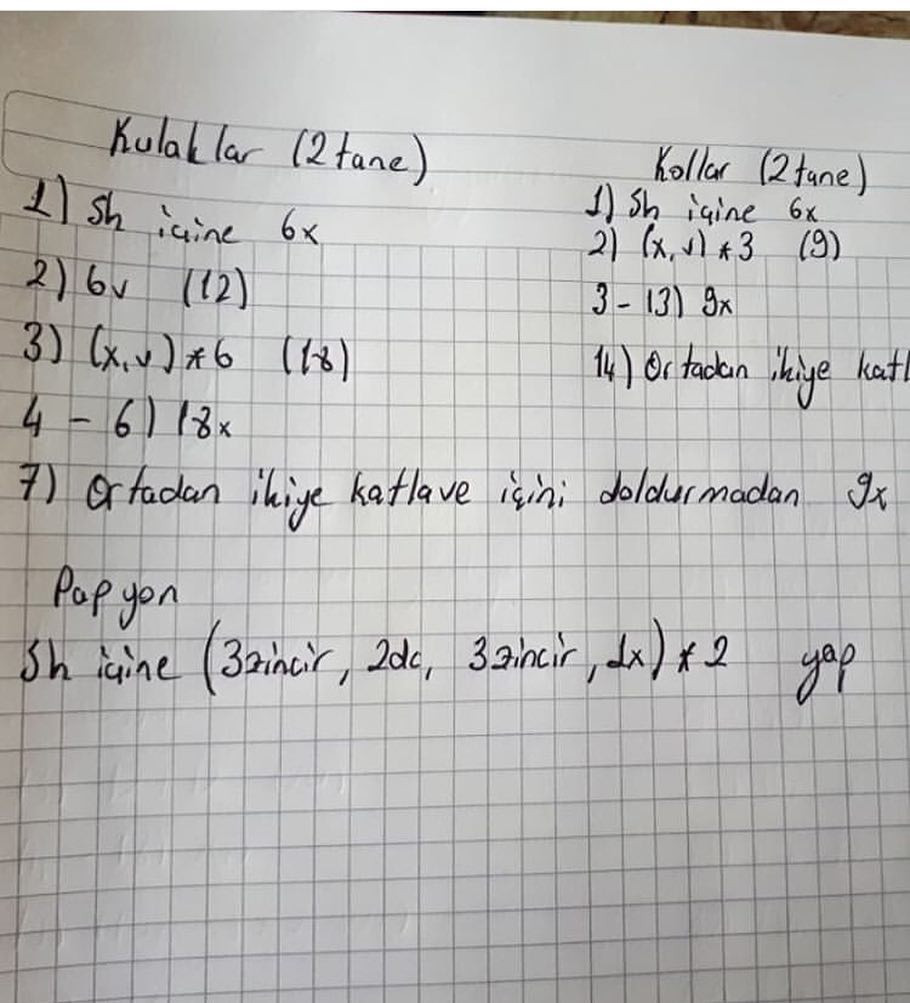 Kulaklar (2 tane)
1) Sh içine 6x
2) 6v (12)
3) (x,v)*6 (18)
4 - 6) 18x
7) Ortadan ikiye katlave içini doldurmadan 9x
Kollar (2 tane)
1) Sh içine 6x
2) (x,v)*3 (9)
3 - 13) 9x
14) Ortadan ikiye katl
Papyon
Sh içine (3zincir, 2dc, 3zincir, 1x)*2 yap